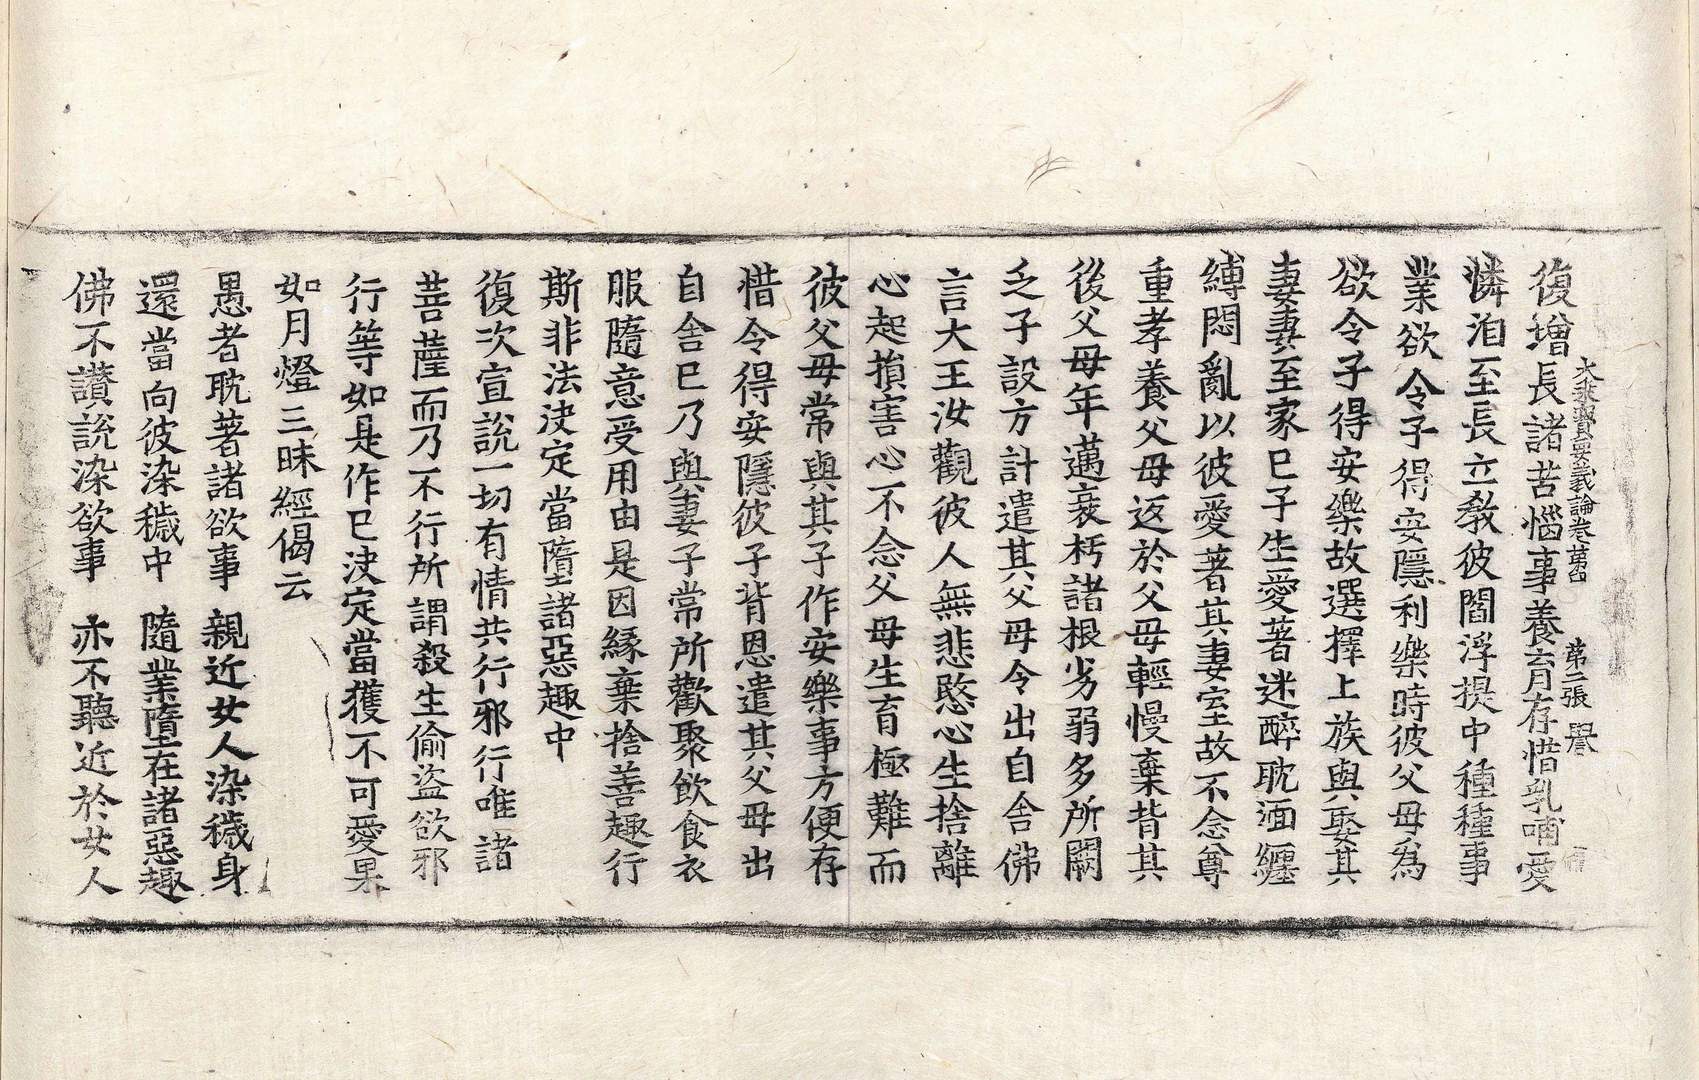 大乘寶要義論卷第四　第二張　譽
復增長諸苦惱事養育存惜乳哺愛
憐洎至長立教彼閻浮提中種種事
業欲令子得安隱利樂時彼父母爲
欲令子得安樂故選擇上族與娶其
妻妻至家已子生愛著迷醉耽湎纏
縛悶亂以彼愛著其妻室故不念尊
重孝養父母返於父母輕慢棄背其
後父母年邁衰朽諸根劣弱多所闕
乏子設方計遣其父母令出自舍佛
言大王汝觀彼人無悲愍心生捨離
心起損害心不念父母生育極難而
彼父母常與其子作安樂事方便存
惜令得安隱彼子背恩遣其父母出
自舍已乃與妻子常所歡聚飲食衣
服隨意受用由是因緣棄捨善趣行
斯非法決定當墮諸惡趣中
復次宣說一切有情共行邪行唯諸
菩薩而乃不行所謂殺生偷盜欲邪
行等如是作已決定當獲不可愛果
如月燈三昧經偈云
愚者耽著諸欲事　親近女人染穢身
還當向彼染穢中　隨業墮在諸惡趣
佛不讚說染欲事　亦不聽近於女人